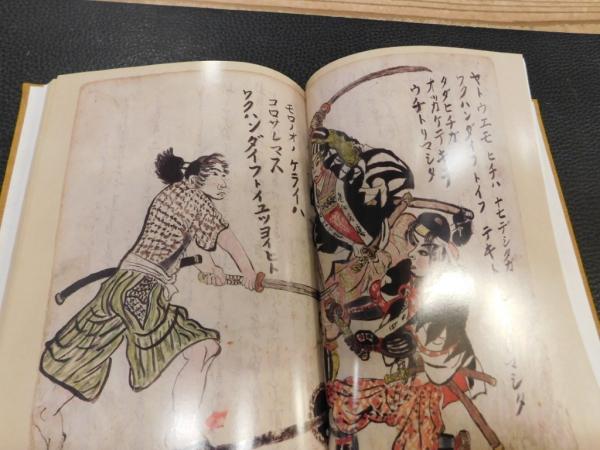 ヤトウエモ ヒチハ
ワクハンダイフトイフ テキヲ
タダヒチガ
オッカケテキテ
ウチトリマシタ
モロノオノ ケライハ
コロサレマス
ワクハンダイフトイユツヨイヒト